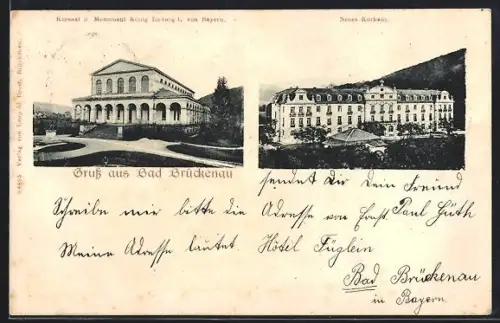 Kursaal u. Monument König Ludwig I. von Bayern.
Neues Kurhaus.
Gruß aus Bad Brückenau
sendet Dir Dein Freund
Paul Hüth
Schreibe mir bitte die Adresse von Ernst
Meine Adresse lautet. Hôtel Füglein
Bad Brückenau
in Bayern.
Verlag von